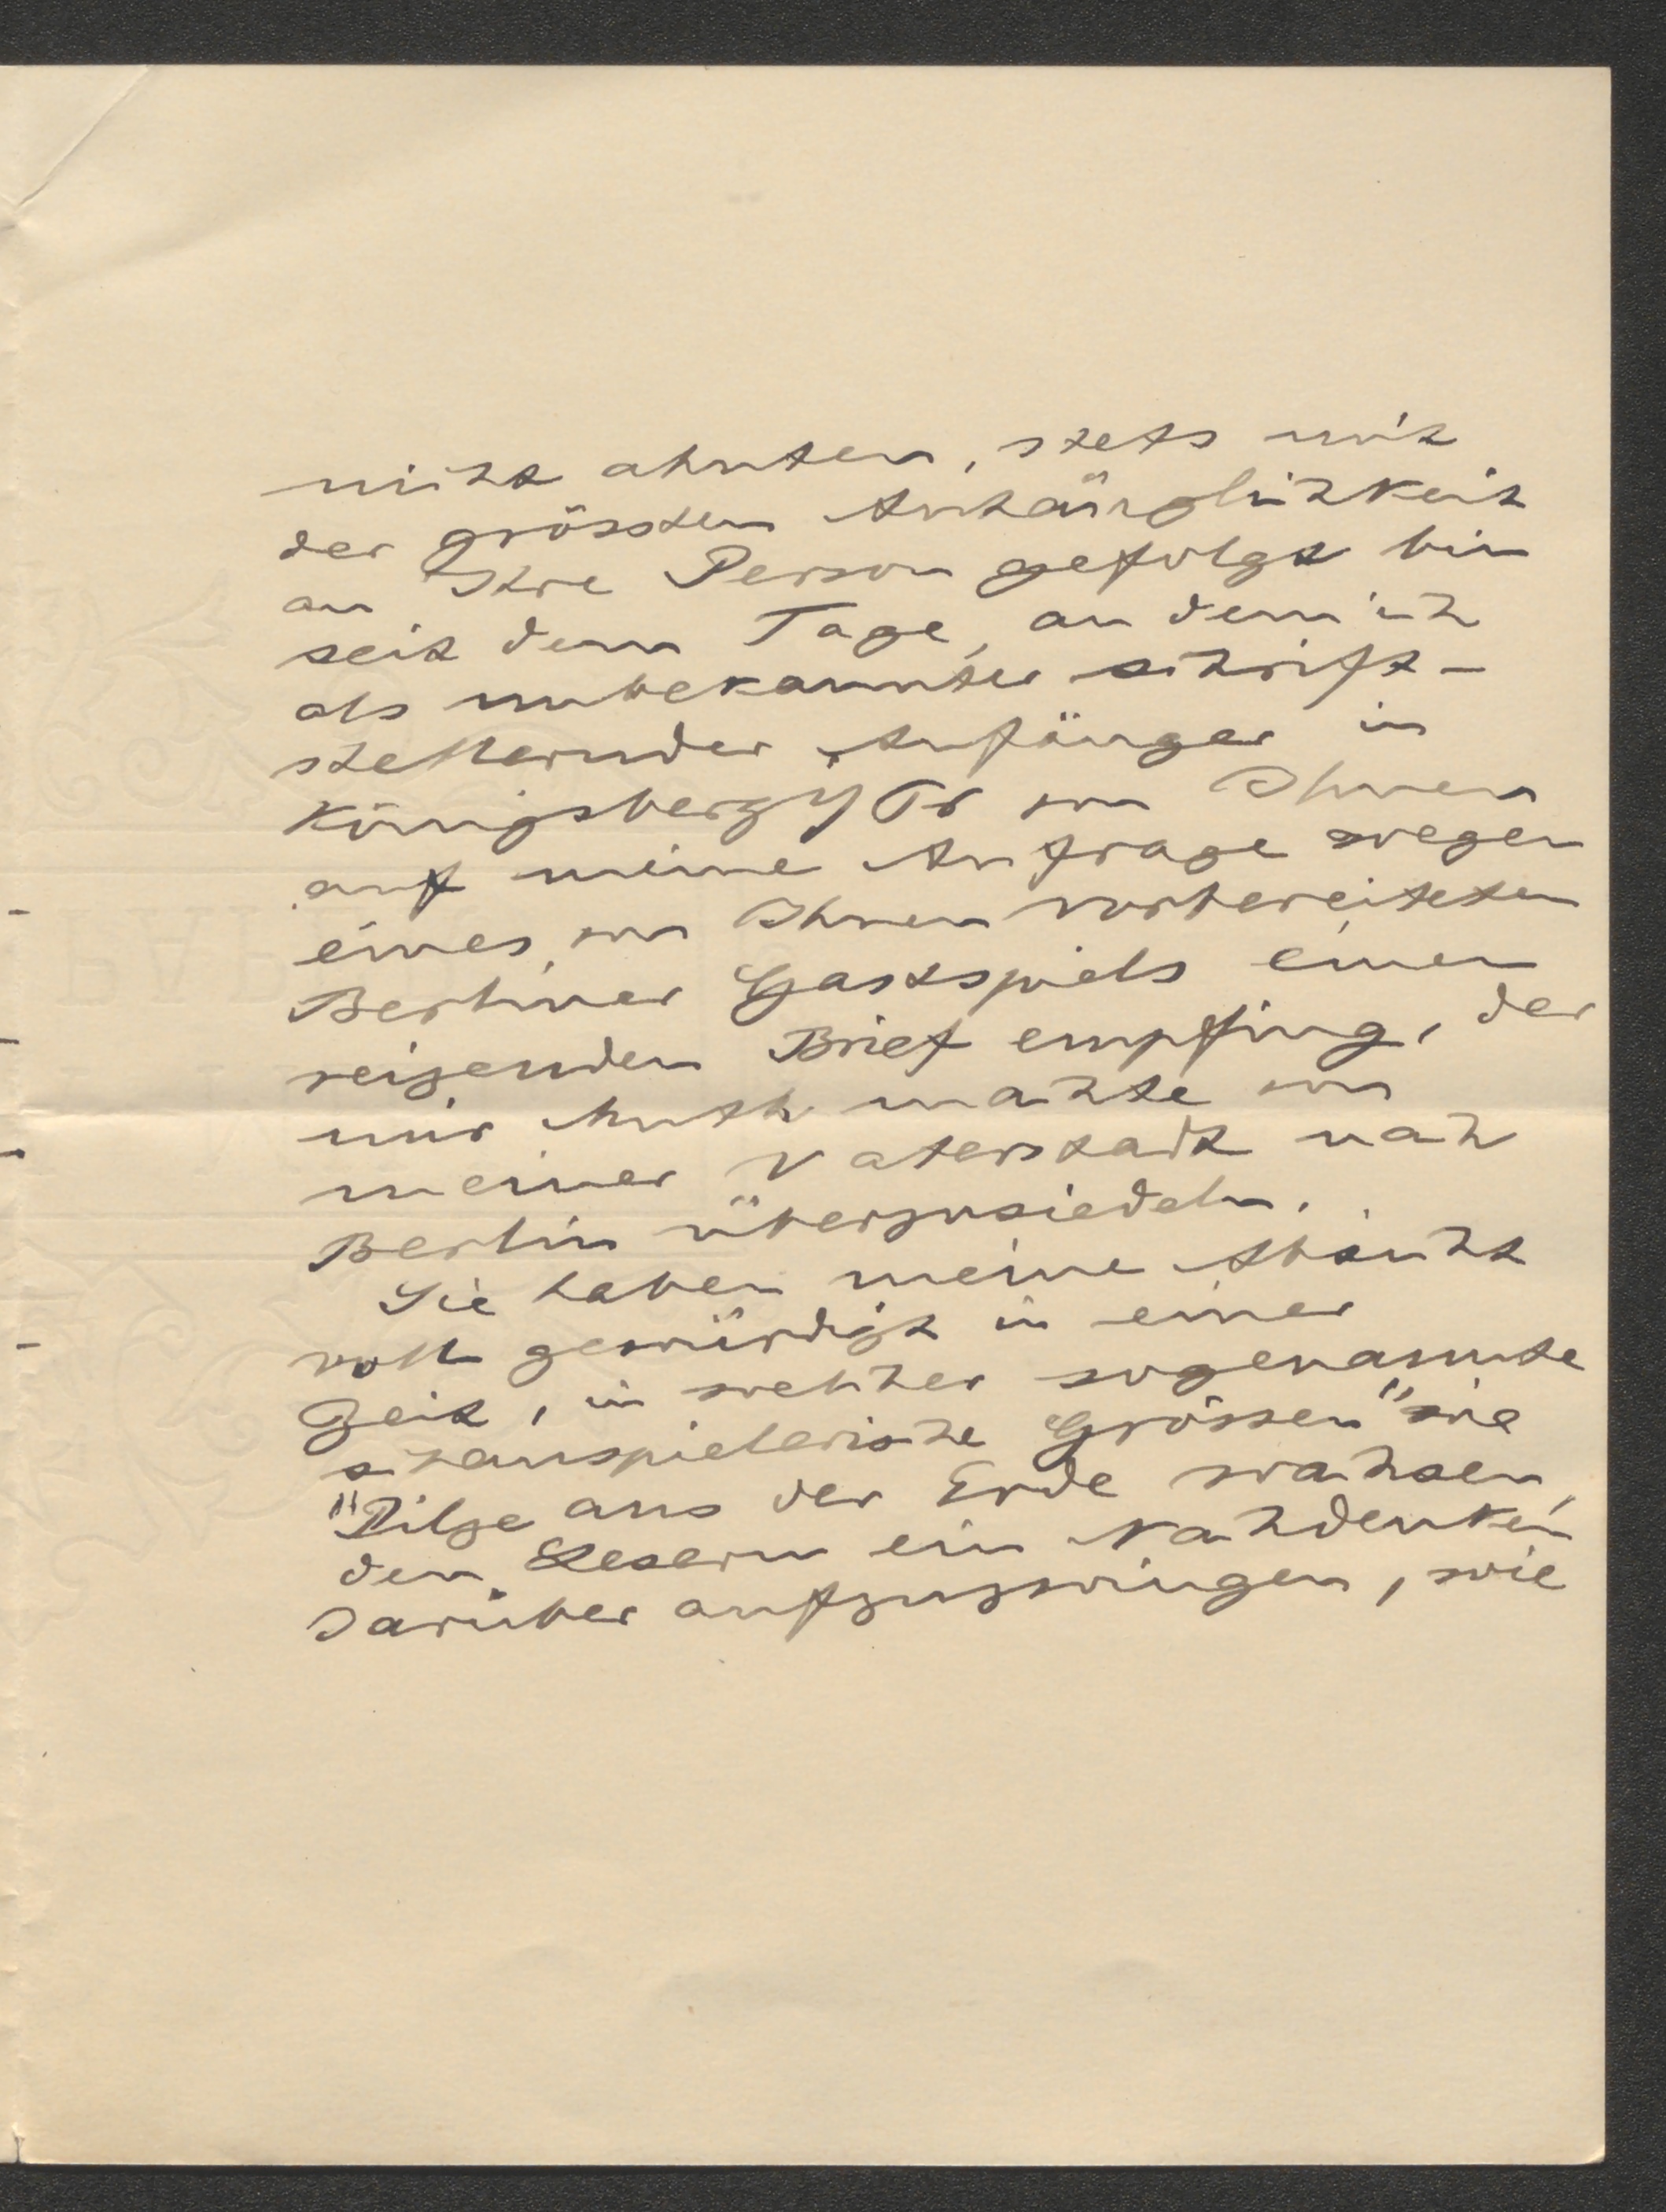 nicht ahnten, stets mit
der grössten Anhänglichkeit
an Ihre Person gefolgt bin
seit dem Tage, an dem ich
als unbekannter schrift-
stellernder Anfänger in
Königsberg i/Pr von Ihnen
auf meine Anfrage wegen
eines von Ihnen vorbereiteten
Berliner Gastspiels einen
reizenden Brief empfing, der
mir Muth machte von
meiner Vaterstadt nach
Berlin überzusiedeln.
Sie haben meine Absicht
voll gewürdigt in einer
Zeit, in welcher sogenannte
schauspielerische Grössen" wie
"Pilze aus der Erde wachsen,
den Lesern ein Nachdenken
darüber aufzuzwingen, wie